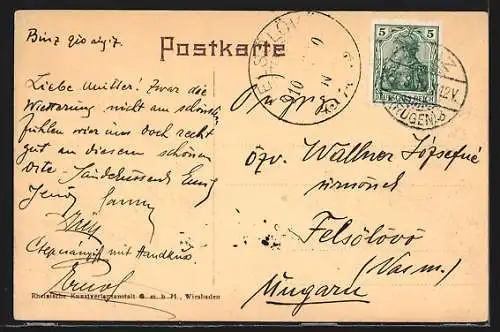 Binz 910
Postkarte
Liebe Mutter! Zwar die
Witterung nicht am schönsten
fühlen wir uns doch recht
gut an diesem schönen
Orte. Handküssend Euer
Jenő
mit Handkuss
Ernst
Rheinische Kunstverlagsanstalt G. m. b. H., Wiesbaden
FELSŐLÖVŐ
910
5 5
DEUTSCHES REICH
BINZ
12.V.
(RÜGEN) b
özv. Wallner Józsefné
úrnőnek
Felsőlövő
(Vas m.)
Ungarn